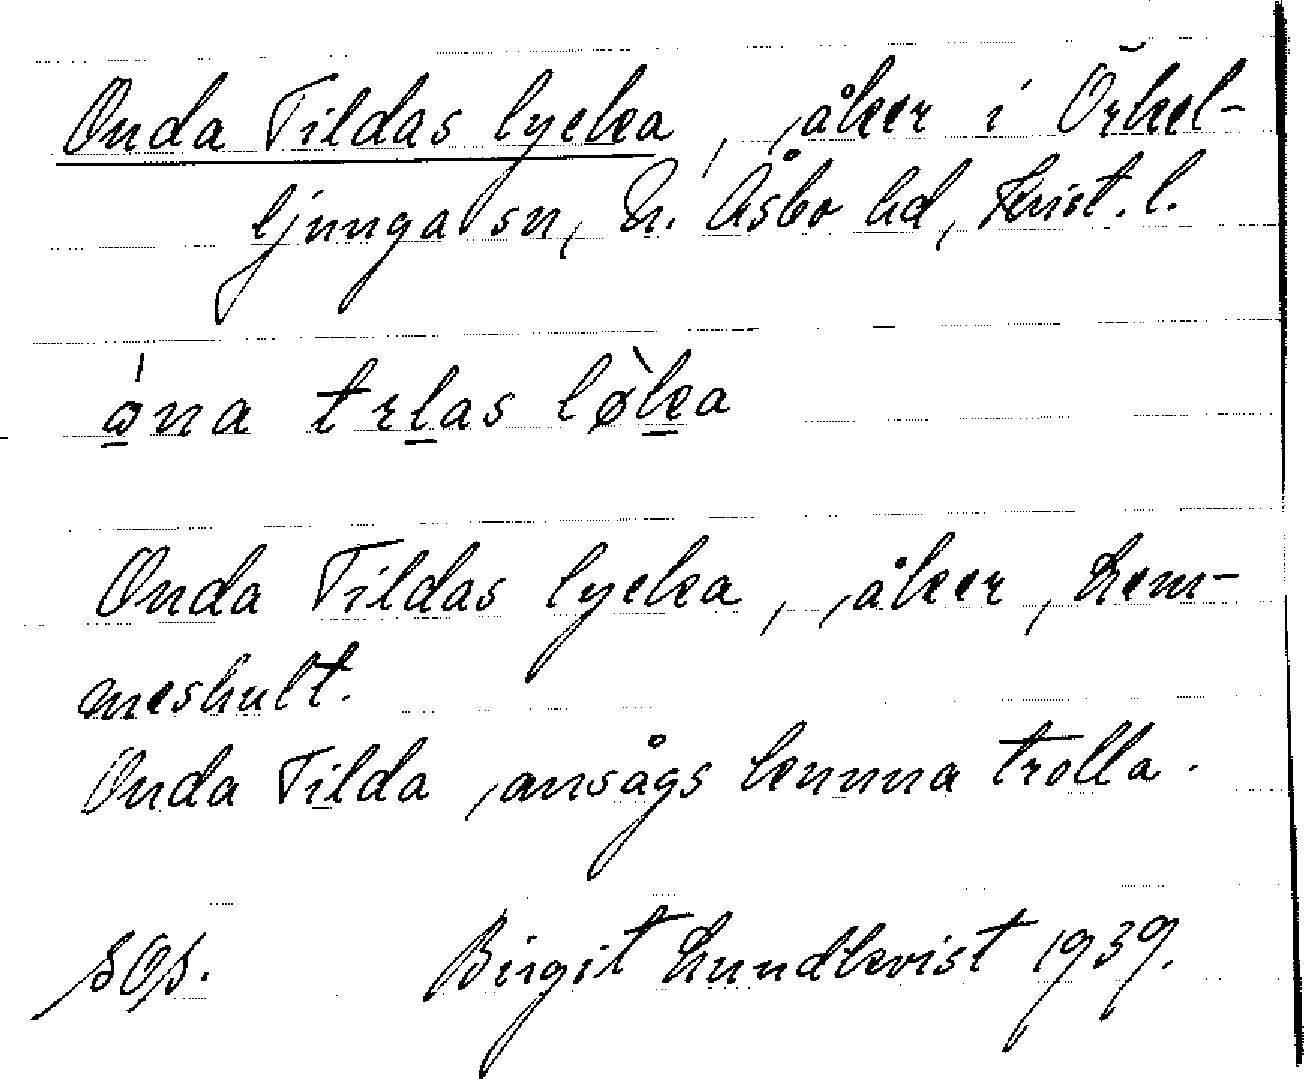 Onda Tildas lycka, åker i Örkel-
ljunga sn, N. Åsbo hd, Krist. l.
ωna tɪlas løka
Onda Tildas lycka, åker, Lem-
meshult.
Onda Tilda ansågs kunna trolla.
SOA. Birgit Lundkvist 1939.